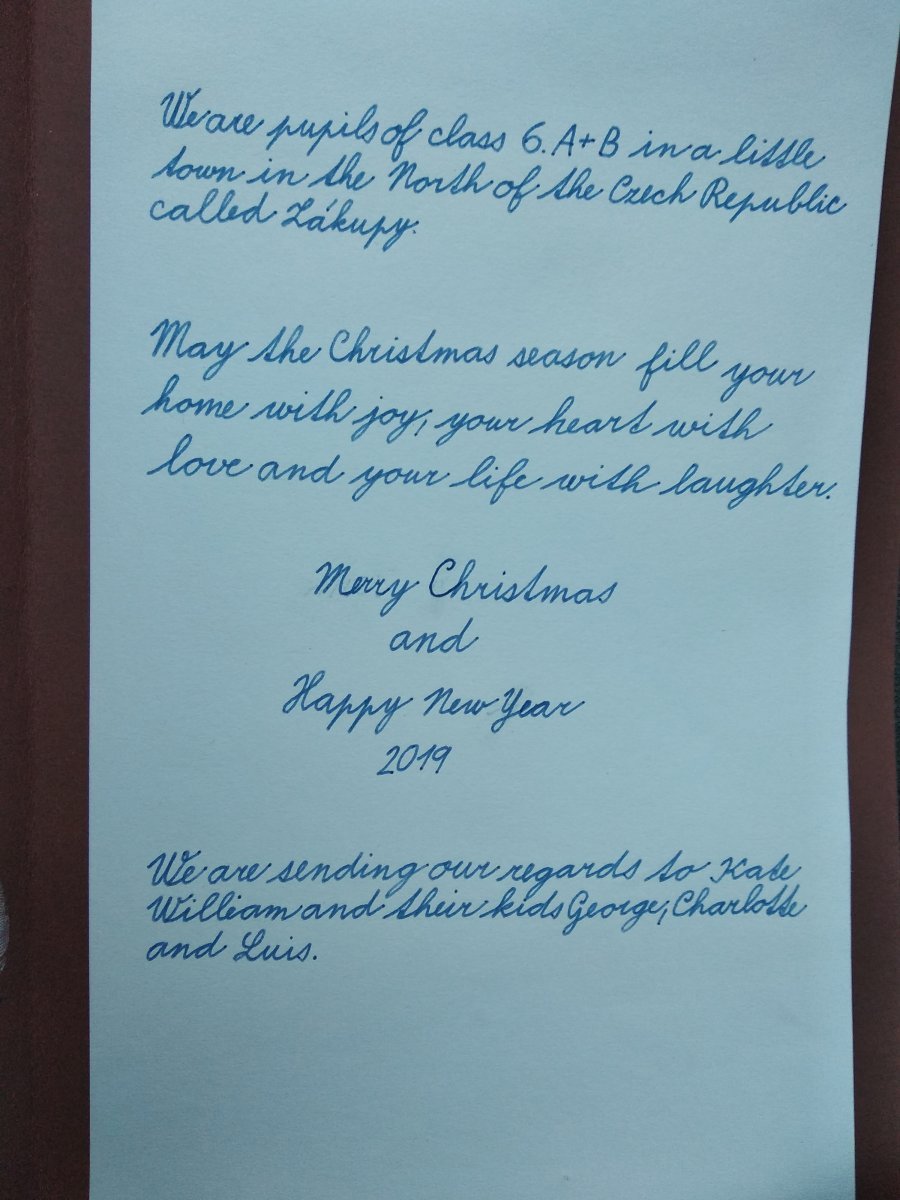 We are pupils of class 6. A+B in a little
town in the North of the Czech Republic
called Zákupy.
May the Christmas season fill your
home with joy, your heart with
love and your life with laughter.
Merry Christmas
and
Happy New Year
2019
We are sending our regards to Kate
William and their kids George, Charlotte
and Luis.